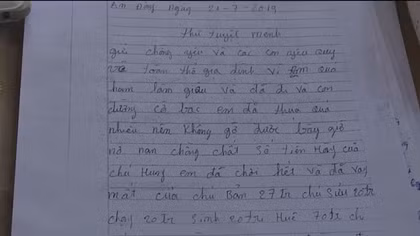 Kim Động ngày 21-7-2019
Thư tuyệt mệnh
gửi chồng yêu và các con yêu quý
và toàn thể gia đình vì em quá
ham làm giàu và đã đi và con
đường cờ bạc em đã thua quá
nhiều nên không gỡ được bây giờ
nợ nan chồng chất số tiền Hay của
chú Huy em đã chơi hết và đã vay
mất của chú Bản 27tr chú Sửu 20tr
chạy 20tr Sinh 20tri Huê 70tr ch